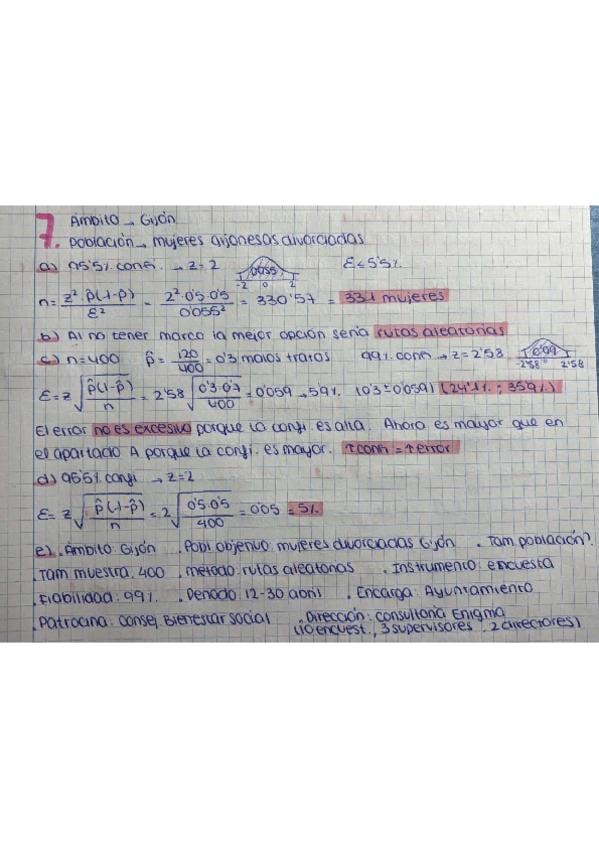 7. Ámbito → Gijón
Población → mujeres gijonesas divorciadas
a) 95'5% confi. → z = 2 0'955 -2 0 2 ε < 5'5%
n = z²·p̂(1-p̂) / ε² = 2²·0'5·0'5 / 0'055² = 330'57 = 331 mujeres
b) Al no tener marco la mejor opción sería rutas aleatorias
c) n = 400 p̂ = 120/400 = 0'3 malos tratos 99% confi → z = 2'58 0'99 -2'58 0 2'58
ε = z √(p̂(1-p̂)/n) = 2'58 √(0'3·0'7/400) = 0'059 → 5'9% (0'3 ± 0'059) (24'1% ; 35'9%)
El error no es excesivo porque la confi. es alta. Ahora es mayor que en
el apartado A porque la confi. es mayor. ↑confi = ↑error
d) 95'5% confi → z = 2
ε = z √(p̂(1-p̂)/n) = 2 √(0'5·0'5/400) = 0'05 = 5%
e) . Ámbito: Gijón . Pobl objetivo: mujeres divorciadas Gijón . Tam población?
. Tam muestra: 400 . método: rutas aleatorias . Instrumento: encuesta
. Fiabilidad: 99% . Periodo: 12-30 abril . Encarga: Ayuntamiento
. Patrocina: Consej. Bienestar social . Dirección: consultoría Enigma
(10 encuest., 3 supervisores, 2 directores)